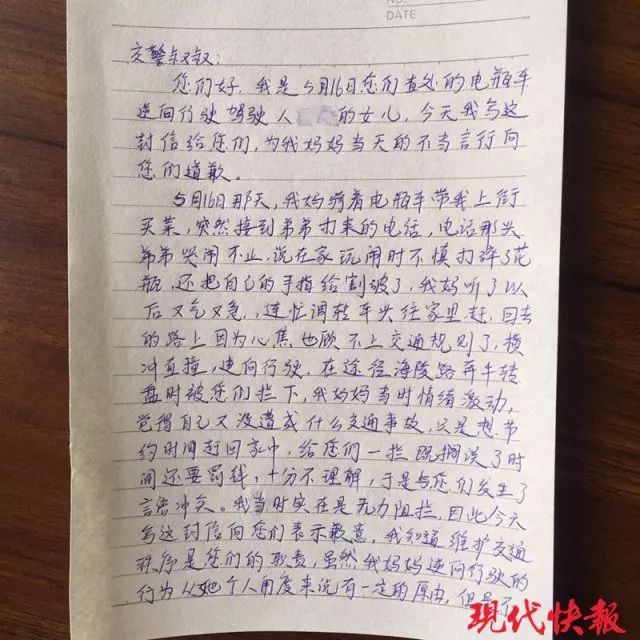 NO.
DATE
交警叔叔:
您们好,我是5月16日您们查处的电瓶车
逆向行驶驾驶人 的女儿,今天我写这
封信给您们,为我妈妈当天的不当言行向
您们道歉。
5月16日那天,我妈骑着电瓶车带我上街
买菜,突然接到弟弟打来的电话,电话那头
弟弟哭闹不止,说在家玩闹时不慎打碎了花
瓶,还把自己的手指给割破了,我妈听了以
后又气又急,连忙调转车头往家里赶,回去
的路上因为心焦也顾不上交通规则了,横
冲直撞,逆向行驶,在途径海陵路奔牛转
盘时被您们拦下,我妈妈当时情绪激动,
觉得自己又没造成什么交通事故,只是想节
约时间赶回家中,给您们一拦既搁误了时
间还要罚钱,十分不理解,于是与您们发生了
言语冲突。我当时实在是无力阻拦,因此今天
写这封信向您们表示歉意,我知道维护交通
秩序是您们的职责,虽然我妈妈逆向行驶的
行为从她个人角度来说有一定的原由,但是
现代快報